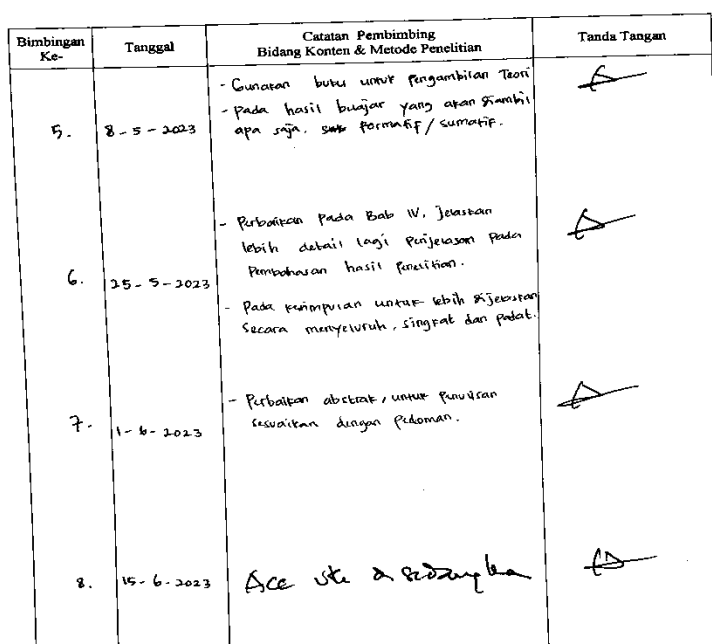 Bimbingan Ke-
Tanggal
Catatan Pembimbing
Bidang Konten & Metode Penelitian
Tanda Tangan
5.
8-5-2023
- Gunakan buku untuk pengambilan Teori
- pada hasil buajar yang akan diambil
apa saja. formatif / sumatif.
6.
25-5-2023
- Perbaikan pada Bab IV, jelaskan
lebih detail lagi penjelasan pada
pembahasan hasil penelitian.
- Pada kesimpulan untuk lebih dijelaskan
secara menyeluruh, singkat dan padat.
7.
1-6-2023
- Perbaikan abstrak, untuk penulisan
sesuaikan dengan pedoman.
8.
15-6-2023
Acc utk di sidangkan